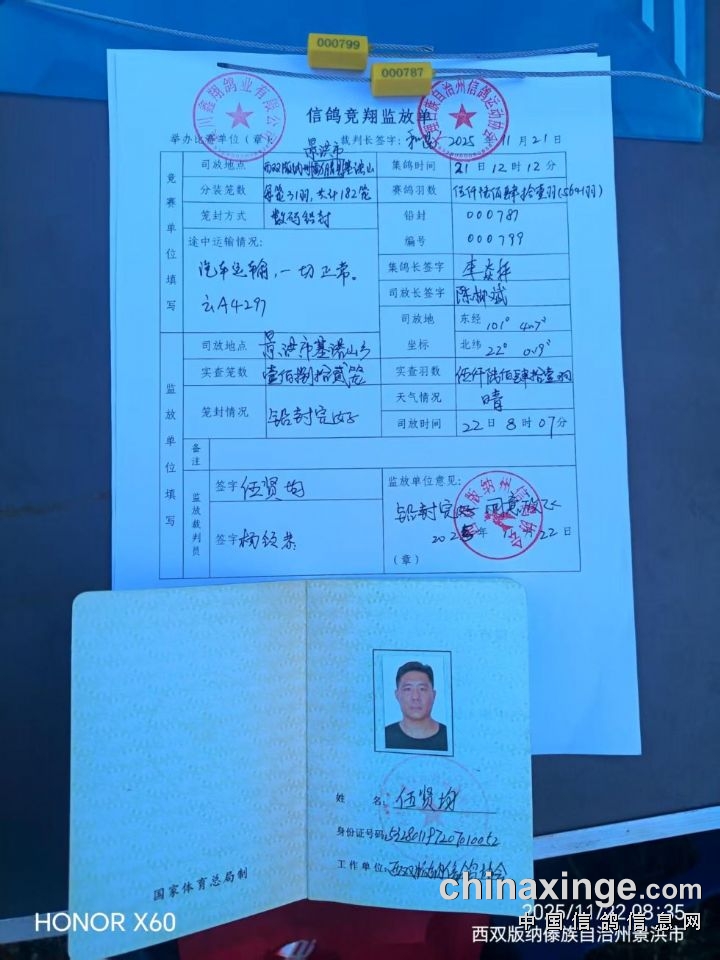 000799
000787
信鸽竞翔监放单
举办比赛单位(章) 裁判长签字: 2025 11月21日
景洪市
竞赛单位填写
司放地点
集鸽时间 21日12时12分
分装笼数 每笼31羽,共计182笼
赛鸽羽数 伍仟陆佰肆拾壹羽(5641羽)
笼封方式 数码铅封
铅封 000787
编号 000799
途中运输情况:
汽车运输,一切正常。
云A4297
集鸽长签字
司放长签字 陈柳斌
司放地 东经 101° 407'
坐标 北纬 22° 019'
监放单位填写
司放地点 景洪市基诺山乡
实查笼数 壹佰捌拾贰笼
实查羽数 伍仟陆佰肆拾壹羽
笼封情况 铅封完好
天气情况 晴
司放时间 22日8时07分
备注
监放裁判员
签字 伍贤均
签字
监放单位意见:
铅封完好 同意放飞
2025年11月22日
(章)
姓名: 伍贤均
身份证号码:
工作单位:
国家体育总局制
chinaxinge.com
HONOR X60
2025/11/22 08:35
中国信鸽信息网
西双版纳傣族自治州景洪市